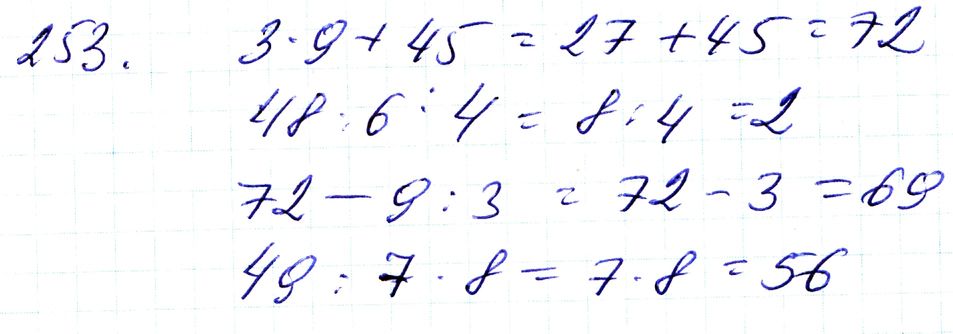 253. 3·9+45=27+45=72
48:6:4=8:4=2
72-9:3=72-3=69
49:7·8=7·8=56